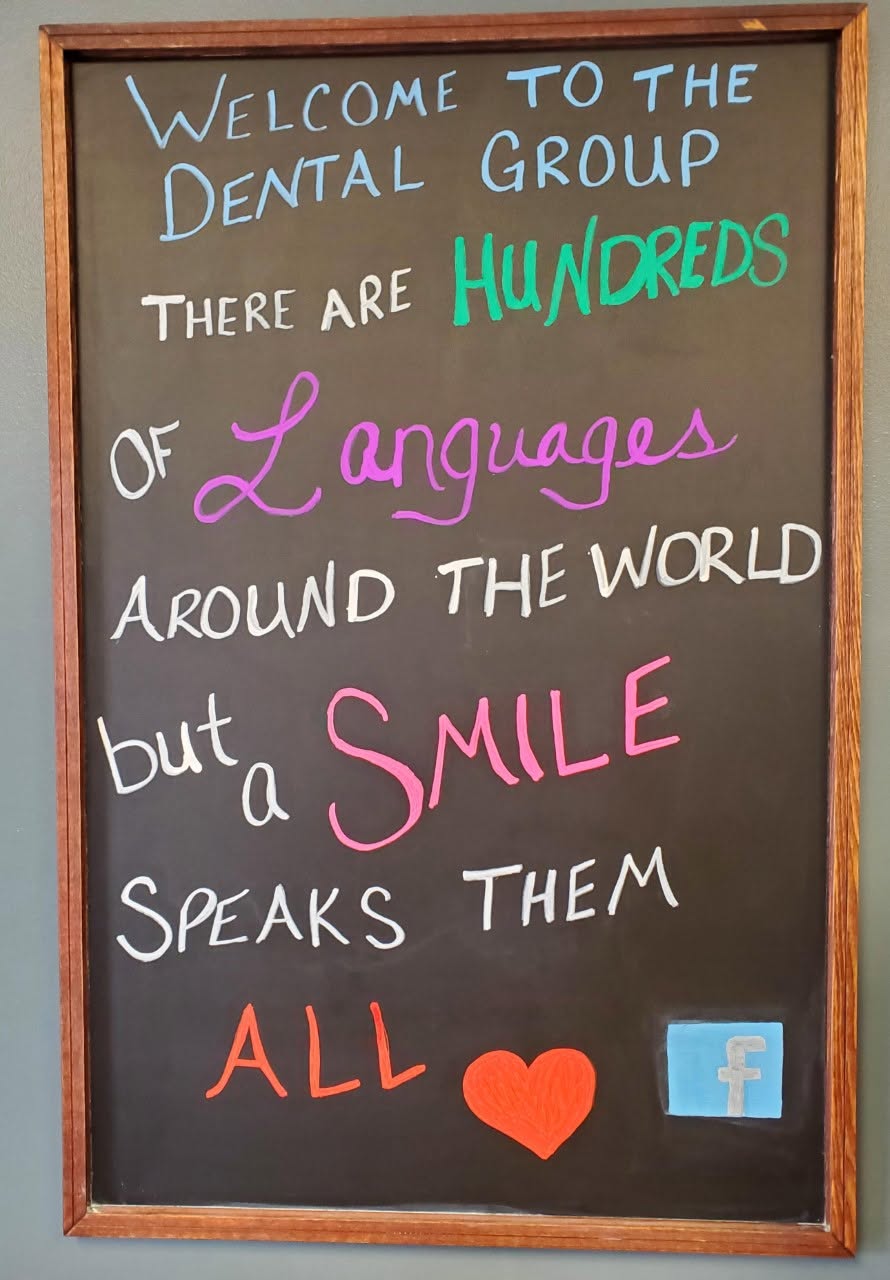 WELCOME TO THE
DENTAL GROUP
THERE ARE HUNDREDS
OF Languages
AROUND THE WORLD
but a SMILE
SPEAKS THEM
ALL
f